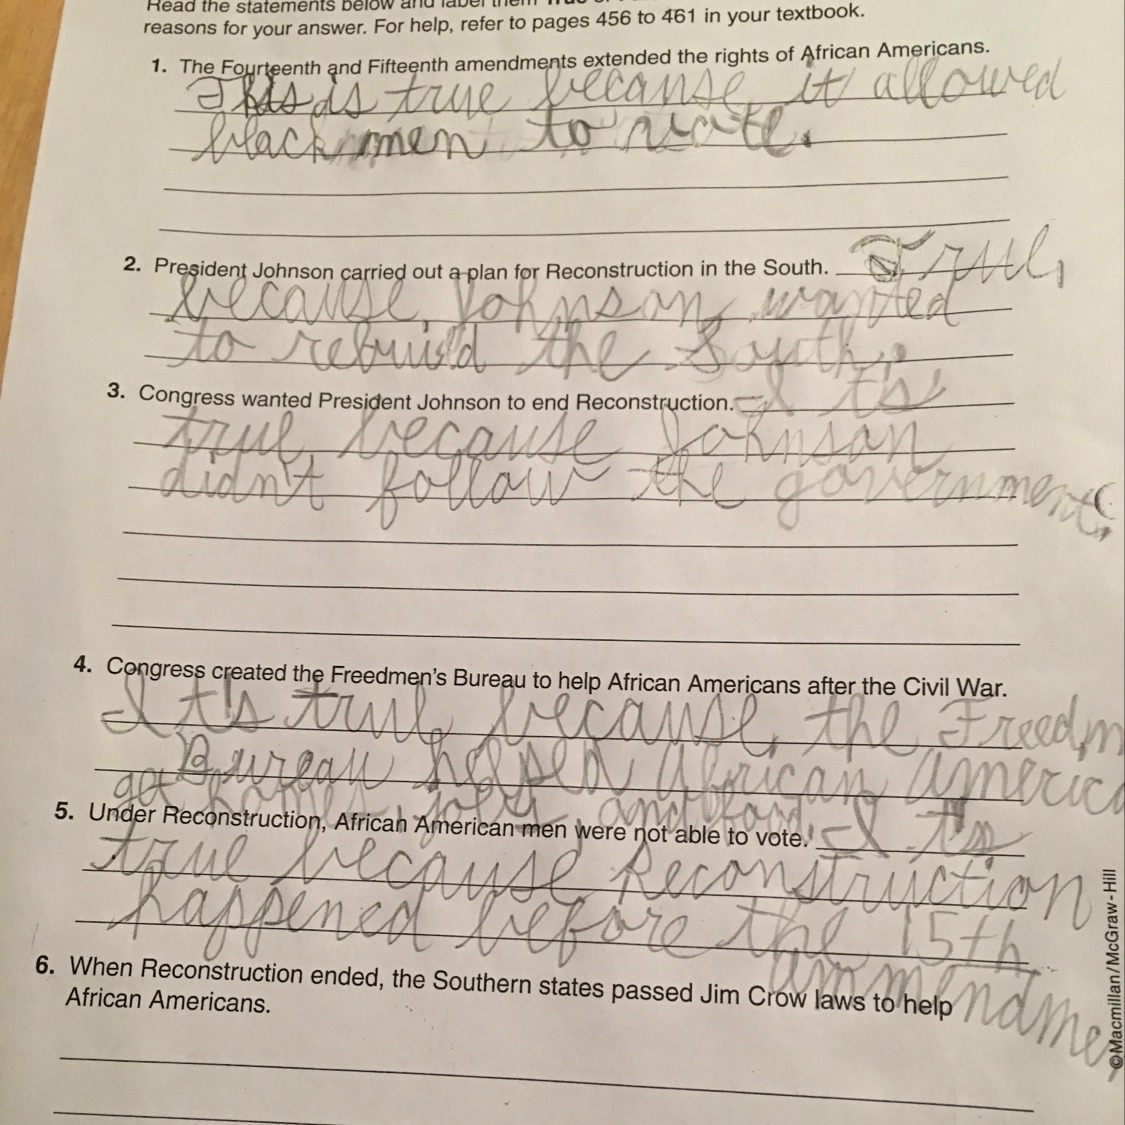 Read the statements below and label them True or
reasons for your answer. For help, refer to pages 456 to 461 in your textbook.
1. The Fourteenth and Fifteenth amendments extended the rights of African Americans.
This is true because it allowed
black men to vote.
2. President Johnson carried out a plan for Reconstruction in the South. True,
because Johnson wanted
to rebuild the South.
3. Congress wanted President Johnson to end Reconstruction. Its
true because Johnson
didn't follow the government.
4. Congress created the Freedmen's Bureau to help African Americans after the Civil War.
It's true because, the Freedm
Bureau helped African Americ
get homes jobs and food.
5. Under Reconstruction, African American men were not able to vote. It's
true because Reconstruction
happened before the 15th
ammendme
6. When Reconstruction ended, the Southern states passed Jim Crow laws to help
African Americans.
©Macmillan/McGraw-Hill